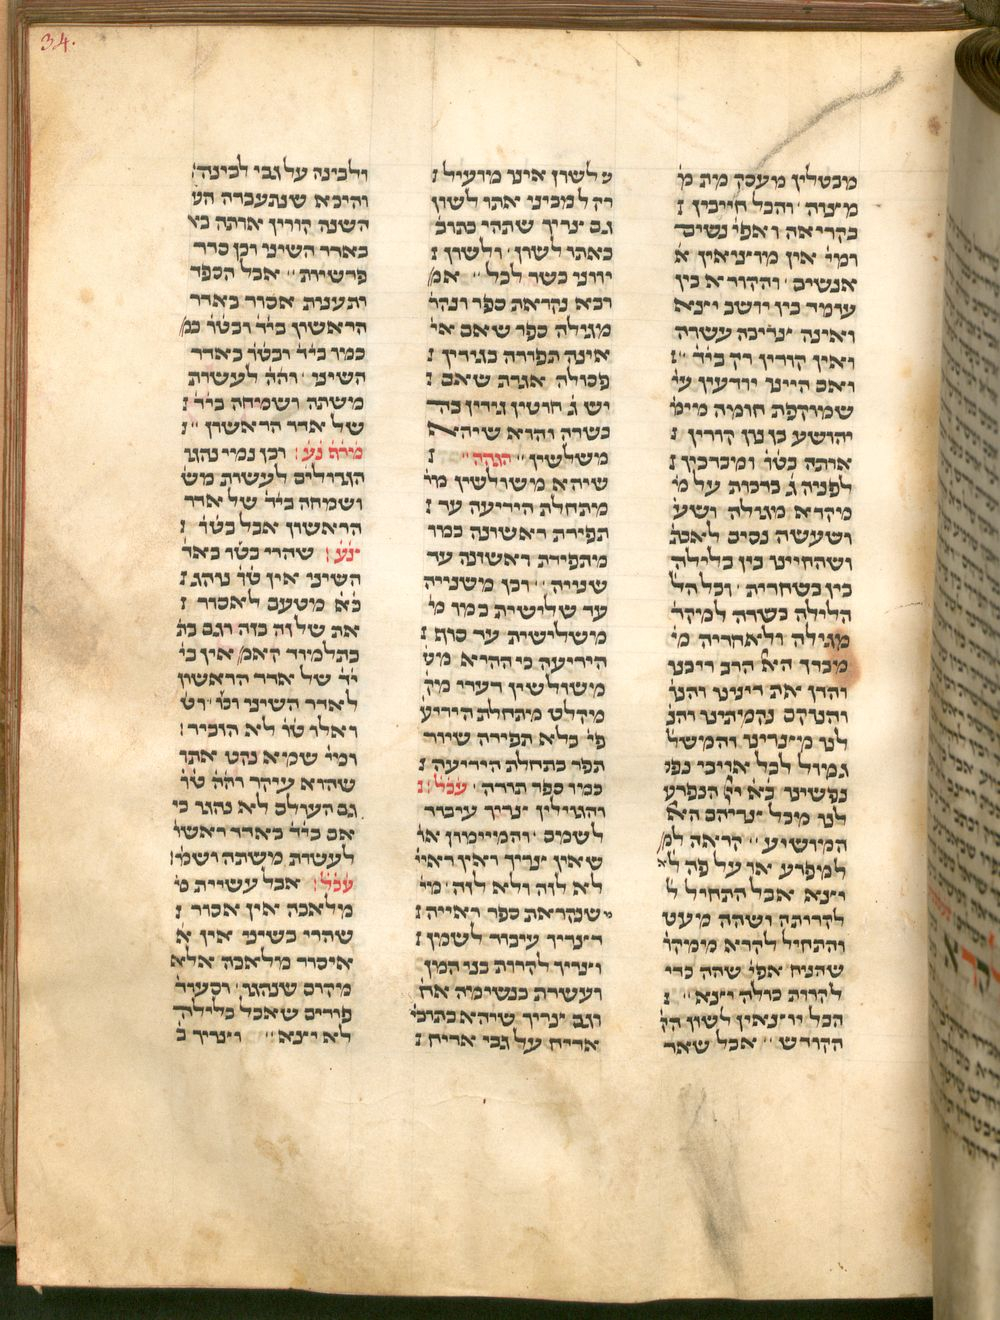 34.
מבטלין מעסק מת מ
מצוה והכל חייבין
בקריאה ואפי' נשים
ומי אין מוציאין א
אנשים והקורא בין
עומד בין יושב יצא
ואינה צריכה עשרה
ואין קורין רק ביד
ואם היינו יודעין עי
שמוקפת חומה מימ
יהושע בן נון קורין
אותה בטו ומברכין
לפניה ג ברכות על מ
מקרא מגילה ושע
ושעשה נסים לאבת
ושהחיינו בין בלילה
בין בשחרית וכל הל
הלילה כשרה למיקר
מגילה ולאחריה מ
מברך הא הרב ריבנו
והדן את דינינו והנו
והנוקם נקמתינו והנ
לנו מצרינו והמשל
גמול לכל אויבי נפש
נפשינו בא יי הנפרע
לנו מכל צריהם הא
המושיע קראה למ
למפרע או על פה לא
יצא אבל התחיל ל
לקרותה ושהה מעט
והתחיל לקרא ממקו
שהניח אפי' שהה כדי
לקרות כולה יצא
הכל יוצאין לשון הק
הקודש אבל שאר
לשון אינו מועיל
רק למכיני אתו לשון
וגם צריך שתהי כתוב
באתו לשון ולשון
יווני כשר לכל אמ
רבא נקראת ספר ונקר
מגילה ספר שאם אי
אינה תפורה בגידין
פסולה אגרת שאם
יש ג חוטין גידין בה
כשרה והוא שיהא
משלשין הגהה
שיהא משולשין מי
מתחלת היריעה עד
תפירת ראשונה כמו
מתפירת ראשונה עד
שנייה וכן משנייה
עד שלישית כמו מ
משלישית עד סוף
היריעה כי ההיא מש
משולשין דערו מק
מקלט מתחלת היריע
פי בלא תפירה שיור
תפר בתחלת היריעה
כמו ספר תורה עכל
והגוילין צריך עיבוד
לשמם והמיימון או
שאין צריך ואין ראיי
לא לזה ולא לזה מי
שנקראת ספר ראייה
דצריך עיבוד לשמן
וצריך לקרות בני המן
ועשרת בנשימה אח
וגם צריך שיהא כתובי
אריח על גבי אריח
ולבינה על גבי לבינה
והיכא שנתעברה הש
השנה קורין אותה בא
באדר השיני וכן סדר
פרשיות אבל הספד
ותענית אסור באדר
הראשון ביד ובטו כמ
כמו ביד ובטו באדר
השיני והה לעשות
משתה ושמחה ביד
של אדר הראשון
מירח נע וכן נמי נהגו
הגדולים לעשות מש
ושמחה ביד של אדר
הראשון אבל בטו
נע שהרי בטו באד
השיני אין טו נוהג
כא מטעם לאסור
את של זה בזה וגם בת
בתלמוד קאמ אין בי
יד של אדר הראשון
לאדר השיני וכו וט
ואלו טו לא הזכיר
ומי שמא נקט אתו
שהוא עיקר והה טו
גם העולם לא נהגו כי
אם ביד באדר ראשו
לעשות משתה ושמ
עכל אבל עשיית מ
מלאכה אין אסור
שהרי בשיני אין א
איסור מלאכה אלא
מקום שנהגו וסעוד
פורים שאכל בלילה
לא יצא וצריך ב